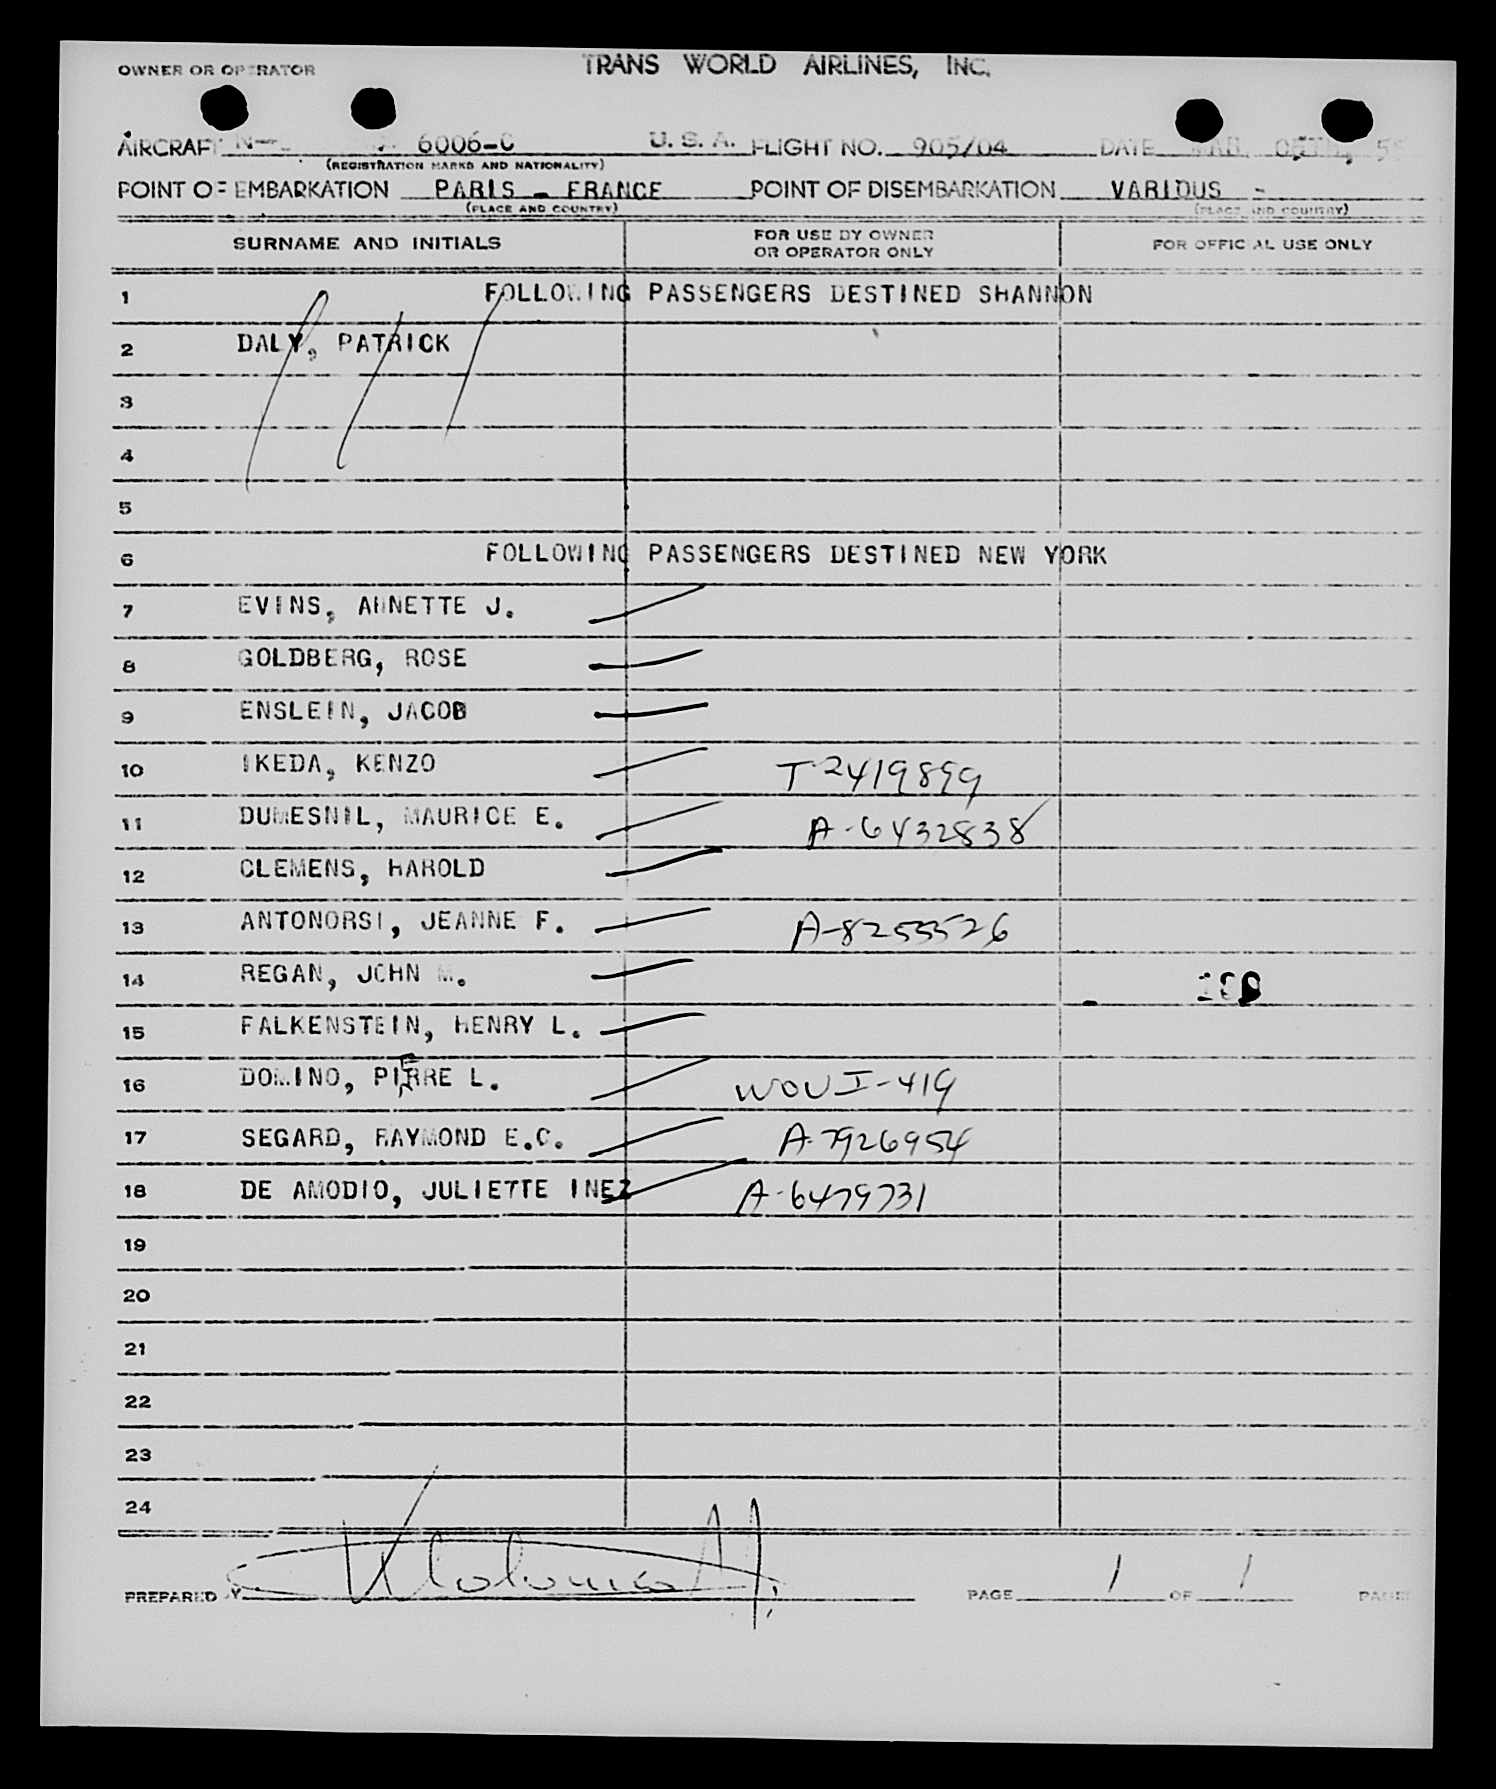 OWNER OR OPERATOR TRANS WORLD AIRLINES, INC.
AIRCRAFT 6006-C U. S. A. FLIGHT NO. 905/04 DATE MAR. 05TH,
(REGISTRATION MARKS AND NATIONALITY)
POINT OF EMBARKATION PARIS - FRANCE POINT OF DISEMBARKATION VARIOUS -
(PLACE AND COUNTRY) (PLACE AND COUNTRY)
SURNAME AND INITIALS FOR USE BY OWNER OR OPERATOR ONLY FOR OFFICIAL USE ONLY
1 FOLLOWING PASSENGERS DESTINED SHANNON
2 DALY, PATRICK
3
4
5
6 FOLLOWING PASSENGERS DESTINED NEW YORK
7 EVINS, ANNETTE J.
8 GOLDBERG, ROSE
9 ENSLEIN, JACOB
10 IKEDA, KENZO T-2419899
11 DUMESNIL, MAURICE E. A-6432838
12 CLEMENS, HAROLD
13 ANTONORSI, JEANNE F. A-8255526
14 REGAN, JOHN M.
15 FALKENSTEIN, HENRY L.
16 DOMINO, PIERRE L. WOU I-419
17 SEGARD, RAYMOND E.C. A-7926954
18 DE AMODIO, JULIETTE INEZ A-6479731
19
20
21
22
23
24
PREPARED BY PAGE 1 OF 1 PAGES